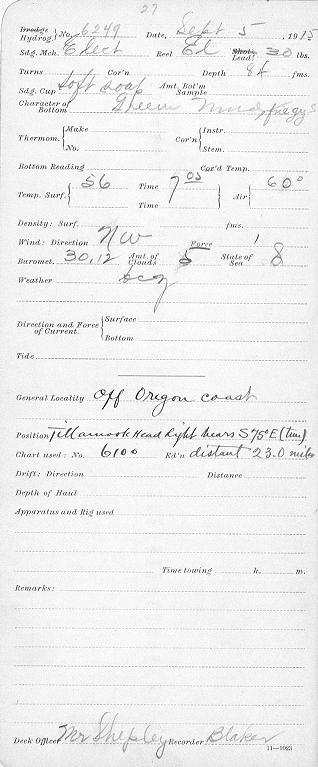 27
Dredge Hydrog. No. 6249 Date, Sept 5, 1915
Sdg. Mch. Elect Reel El Shot, Lead 30 lbs.
Turns Cor'n Depth 84 fms.
Sdg. Cup Soft soap Amt. Bot'm Sample
Character of Bottom Green Mud
Thermom. Make No. Cor'n Instr. Stem.
Bottom Reading Cor'd Temp.
Temp. Surf. 56 Time 7 05 Time Air 60°
Density: Surf. fms.
Wind: Direction NW Force 1
Baromet. 30.12 Amt. of Clouds 5 State of Sea 8
Weather bcg
Direction and Force of Current. Surface Bottom
Tide
General Locality Off Oregon coast
Position Tillamook Head Light bears S 75° E (true)
Chart used: No. 6100 Ed'n distant 23.0 miles
Drift: Direction Distance
Depth of Haul
Apparatus and Rig used
Time towing h. m.
Remarks:
Deck Officer Mr Shepley Recorder Blaker
11—1023